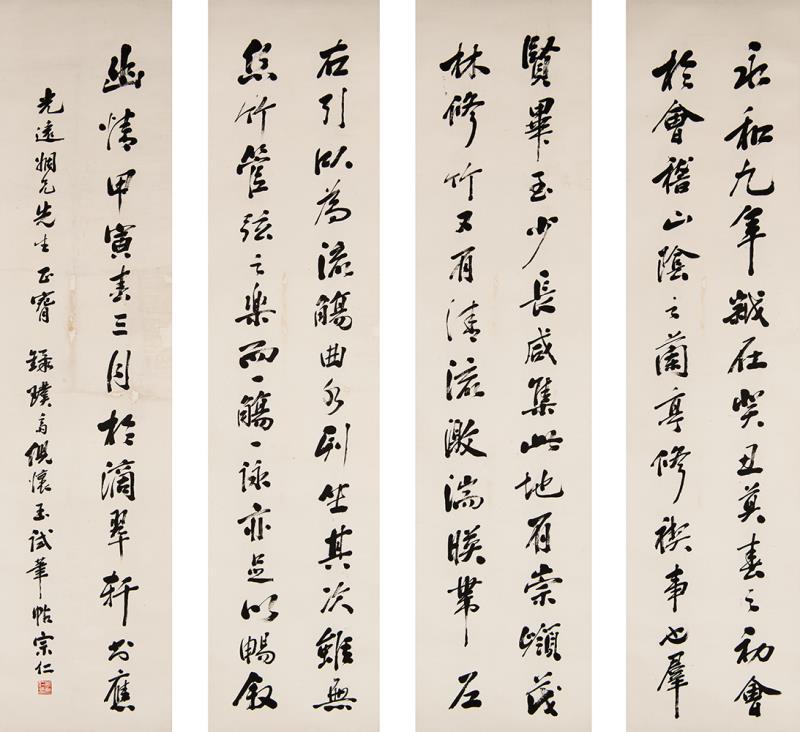 永和九年歲在癸丑莫春之初會
於會稽山陰之蘭亭修禊事也羣
賢畢至少長咸集此地有崇嶺茂
林修竹又有清流激湍暎帶左
右引以為流觴曲水列坐其次雖無
絲竹管弦之樂而一觴一詠亦足以暢敘
幽情甲寅春三月於滴翠軒書應
光遠姻兄先生正 錄 懷玉試筆帖宗仁